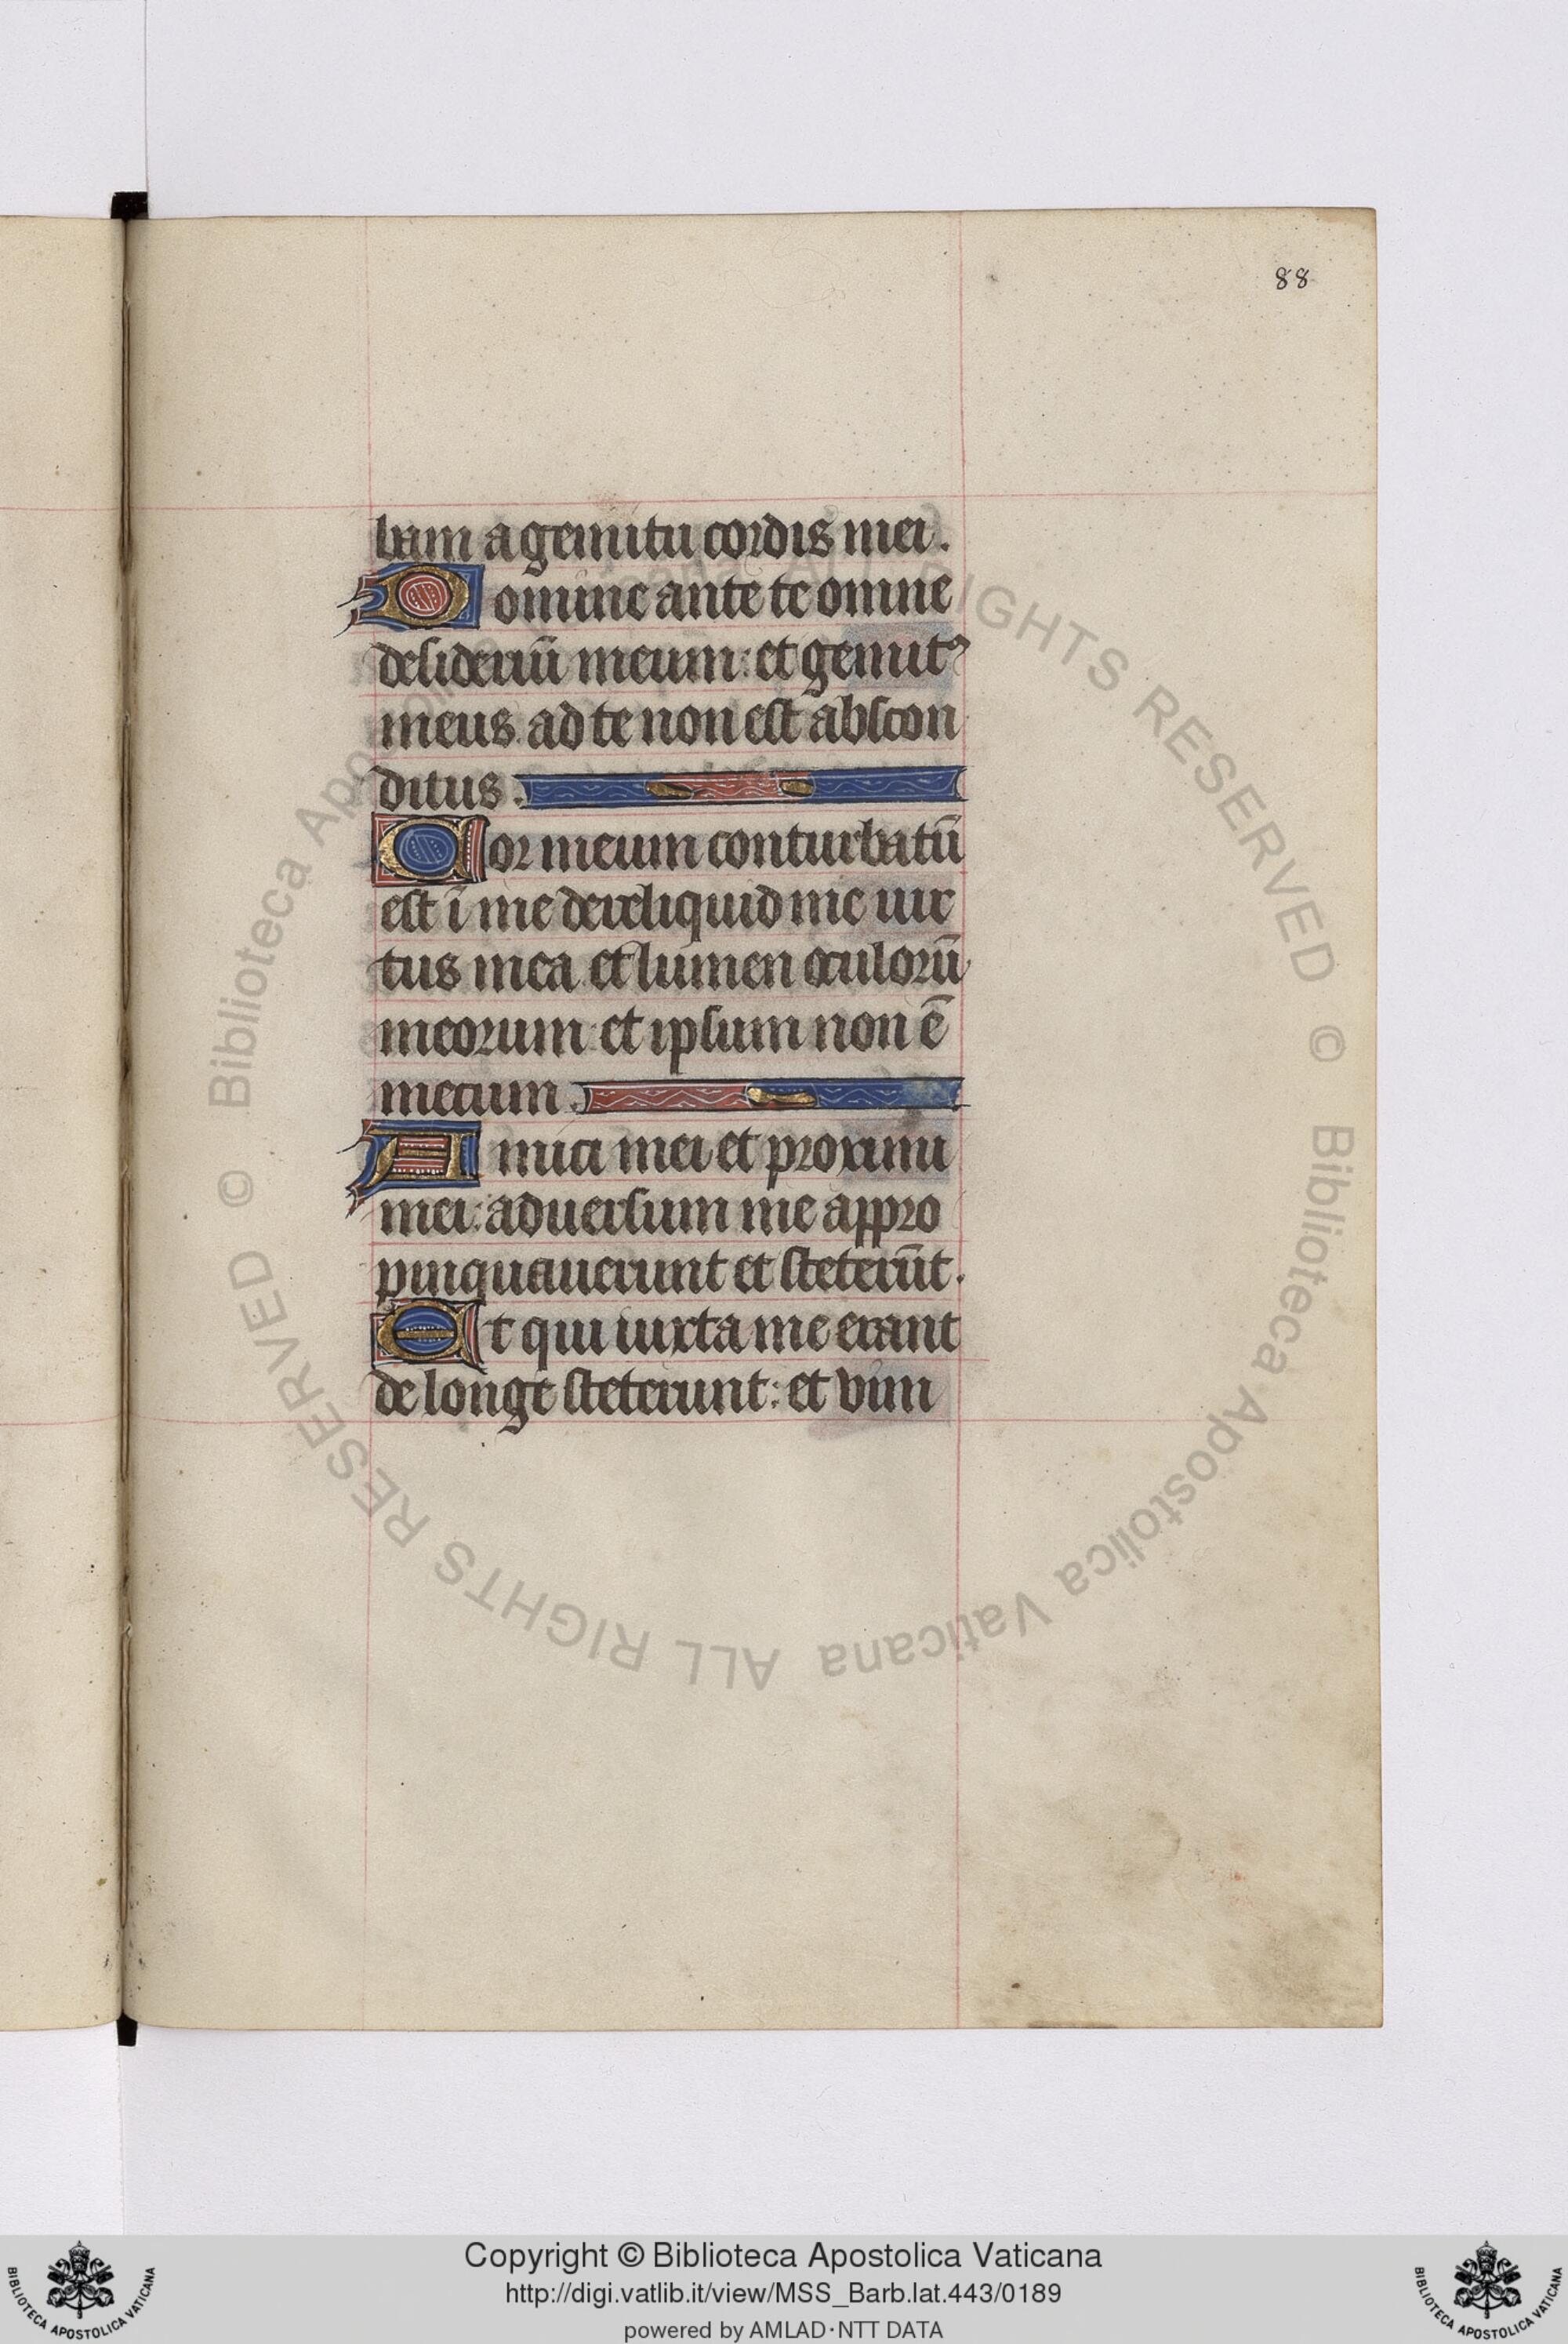 88
bam a gemitu cordis mei.
Domine ante te omne
desideriū meum: et gemitꝰ
meus ad te non est abscon
ditus.
Cor meum conturbatū
est ī me dereliquid me uir
tus mea et lumen oculorū
meorum: et ipsum non ē
mecum.
Amici mei et proximi
mei: aduersum me appro
pinquauerunt et steterūt.
Et qui iuxta me erant
de longe steterunt: et vim
© Biblioteca Apostolica Vaticana ALL RIGHTS RESERVED
© Biblioteca Apostolica Vaticana ALL RIGHTS RESERVED
Copyright © Biblioteca Apostolica Vaticana
http://digi.vatlib.it/view/MSS_Barb.lat.443/0189
powered by AMLAD·NTT DATA
BIBLIOTECA APOSTOLICA VATICANA
BIBLIOTECA APOSTOLICA VATICANA